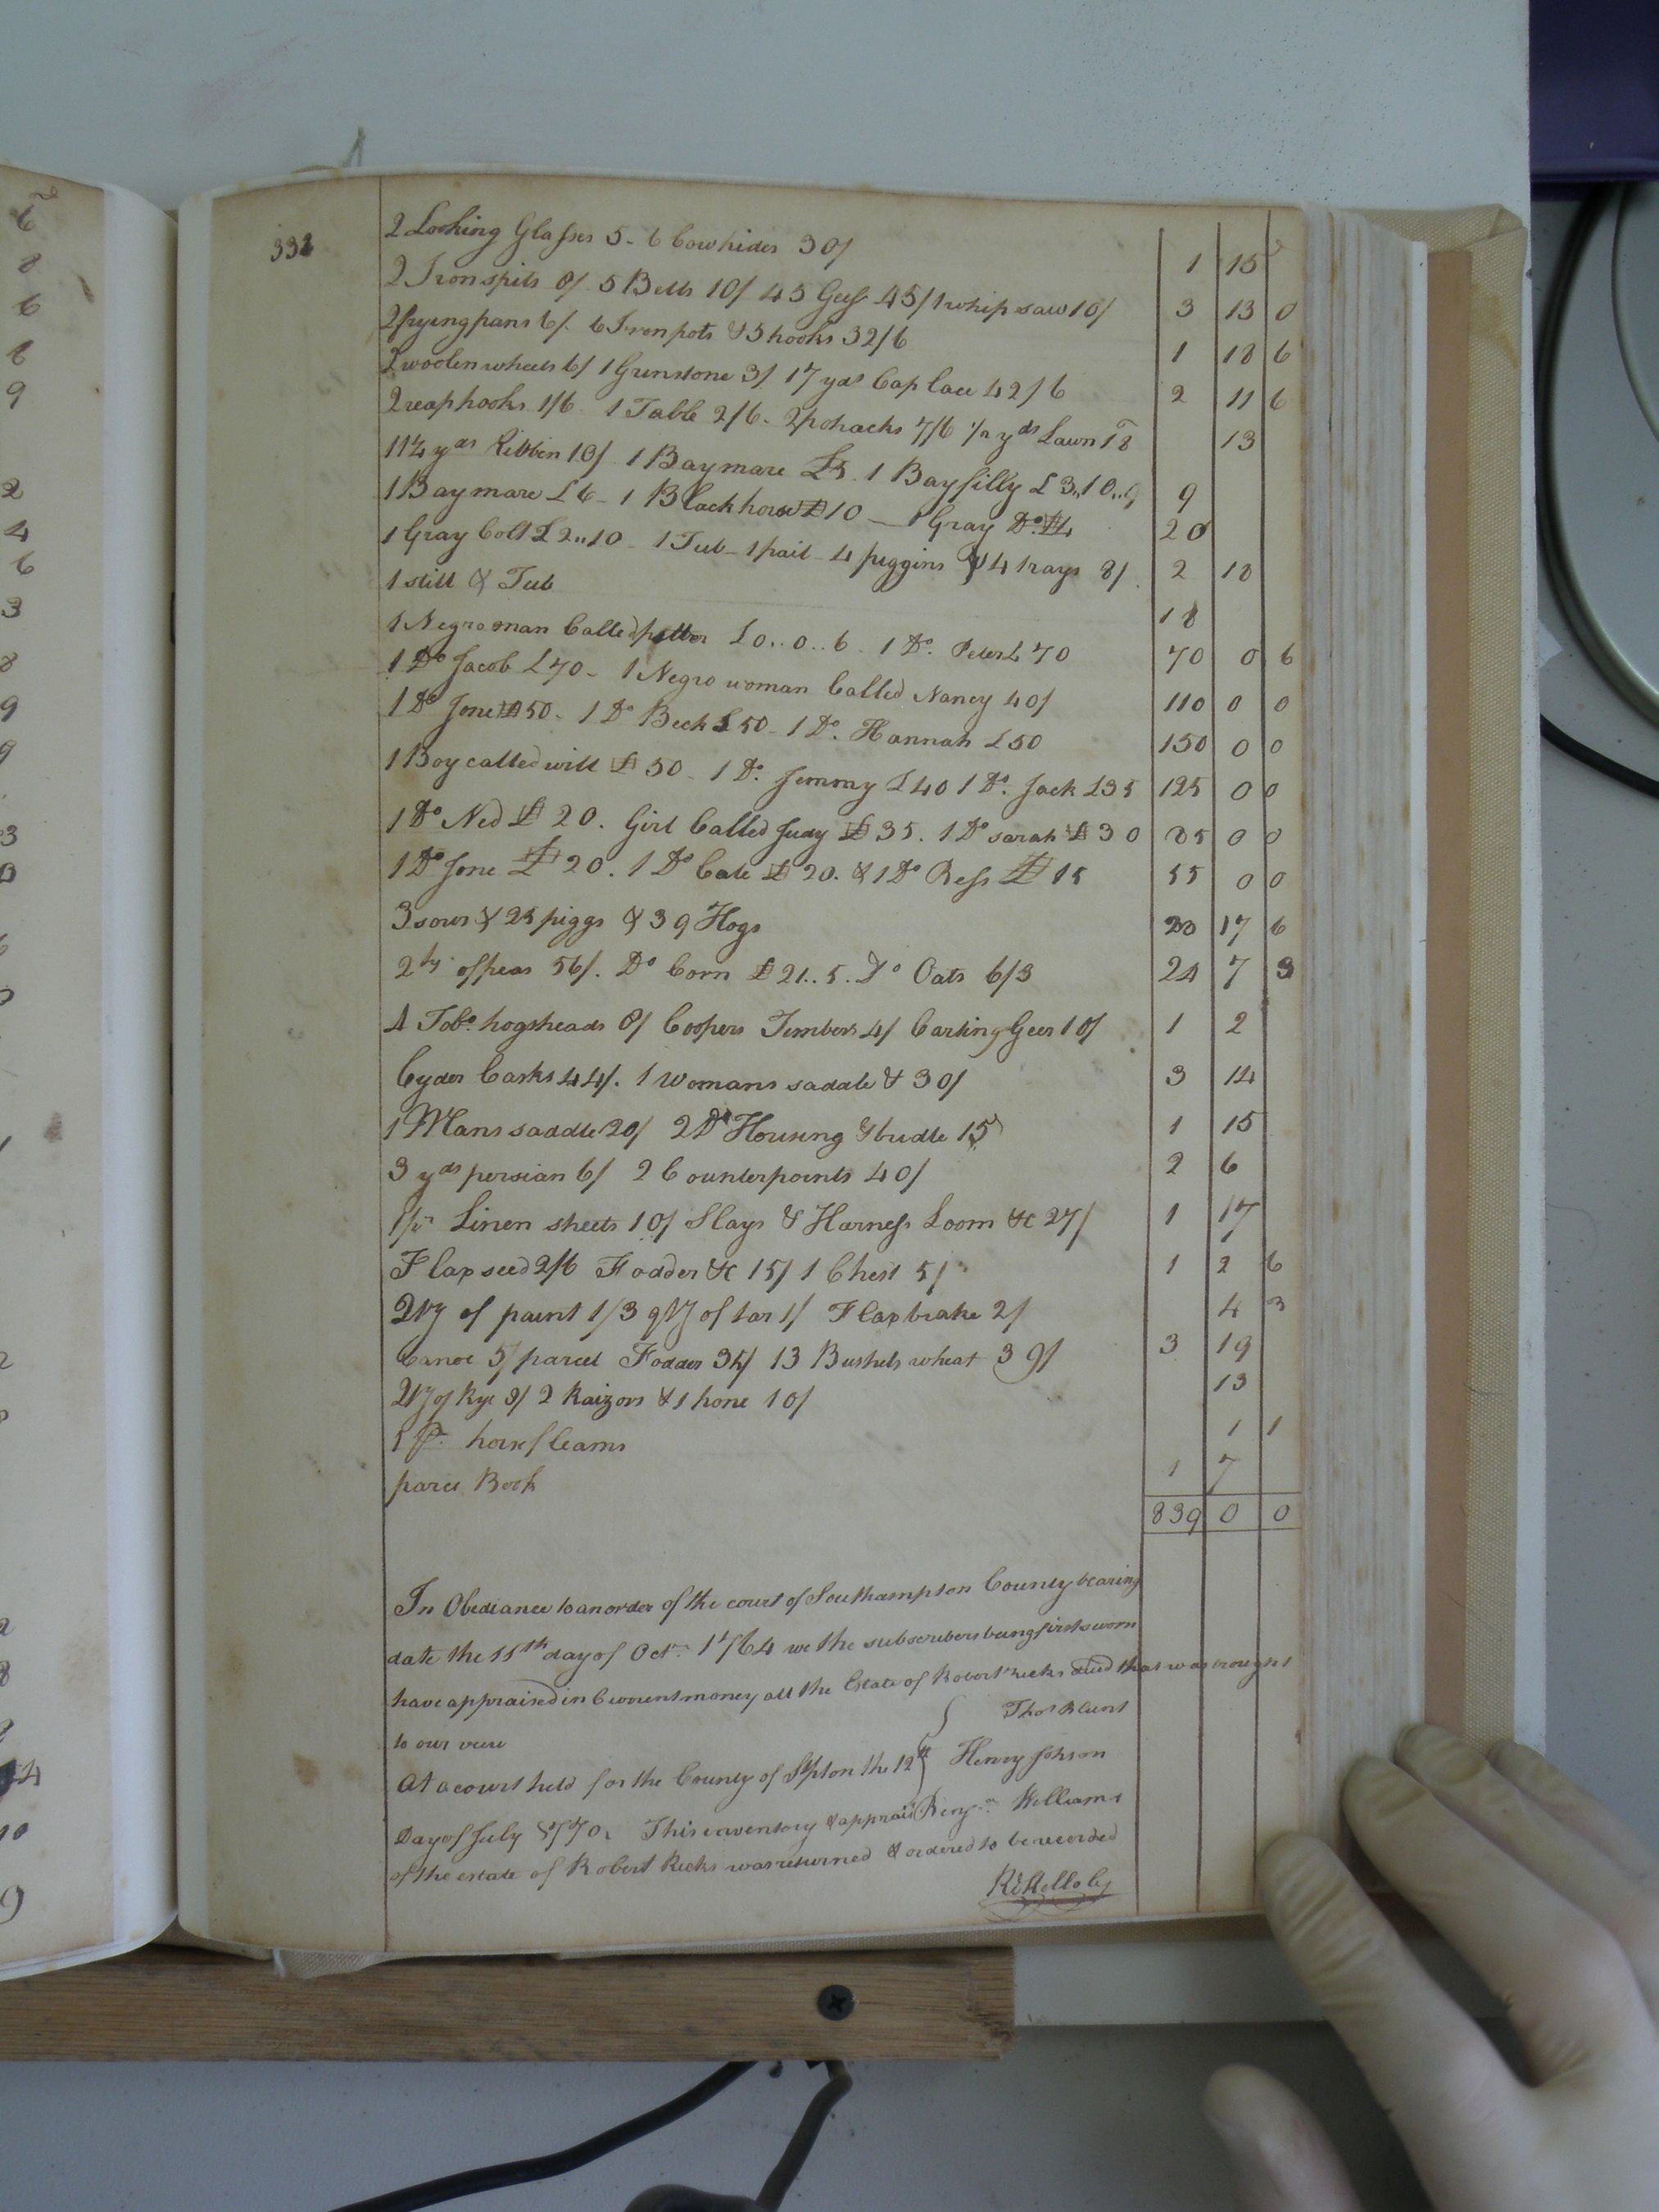 332
2 Looking Glasses 5 - 6 Cowhides 30/ 1 15
2 Iron spits 8/ 5 Bells 10/ 45 Geese 45/ 1 whip saw 10/ 3 13 0
2 frying pans 6/. 6 Iron pots & 3 hooks 32/6 1 18 6
2 woolen wheels 6/ 1 Grinstone 3/ 17 yds Cap lace 42/6 2 11 6
2 reaphooks 1/6 1 Table 2/6 - 2 7/6 yds Lawn 13
11½ yds Ribbin 10/ 1 Bay mare £5. 1 Bay filly £3..10..0 9
1 Bay mare £6 - 1 Black horse £10 — 1 Gray Do. £4 20
1 Gray Colt £2..10 - 1 Tub - 1 pail - 4 piggins & 4 trays 8/. 2 18
1 still & Tub 18
1 Negro man Called £0..0..6 - 1 Do. Peter £70 70 0 6
1 Do Jacob £70 - 1 Negro woman Called Nancy 40/ 110 0 0
1 Do Jone £50 - 1 Do Beck £50 - 1 Do. Hannah £50 150 0 0
1 Boy called will £50 - 1 Do. Jemmy £40 1 Do. Jack £35 125 0 0
1 Do Ned £20. Girl Called Judy £35. 1 Do sarah £30 85 0 0
1 Do Jone £20. 1 Do Cate £20. & 1 Do Bess £15 55 0 0
3 sows & 25 piggs & 39 Hogs 20 17 6
2ty of peas 56/. Do Corn £21..5. Do Oats 6/3 24 7 3
4 Tobo. hogsheads 8/ Coopers Timbers 4/ Carting Geer 10/ 1 2
Cyder Casks 44/. 1 Womans saddle & 30/ 3 14
1 Mans saddle 20/ 2 Do Housing & bridle 15 1 15
3 yds persian 6/ 2 Counterpoints 40/ 2 6
1 pr Linen sheets 10/ Slays & Harness Loom &c 27/ 1 17
Flax seed 2/6 Fodder &c 15/ 1 Chest 5/ 1 2 6
Qty of paint 1/3 qty of tar 1/ Flax brake 2/ 4 3
Canoe 5/ parcel Fodder 35/ 13 Bushels wheat 39/ 3 19
Qty of Rye 3/ 2 Raizors & 1 hone 10/ 13
1 pr. horse fleams 1 1
parcel Book 1 7
839 0 0
In Obediance to an order of the court of Southampton County bearing
date the 11th day of Octr. 1764 we the subscribers being first sworn
have appraised in Current money all the Estate of Robert Ricks decd that was brought
to our view Thos Blunt
At a court held for the County of Sthpton the 12th Henry Johson
Day of July 1770. This inventory & apprais Benjn. Williams
of the estate of Robert Ricks was returned & ordered to be recorded
R Kello Cy